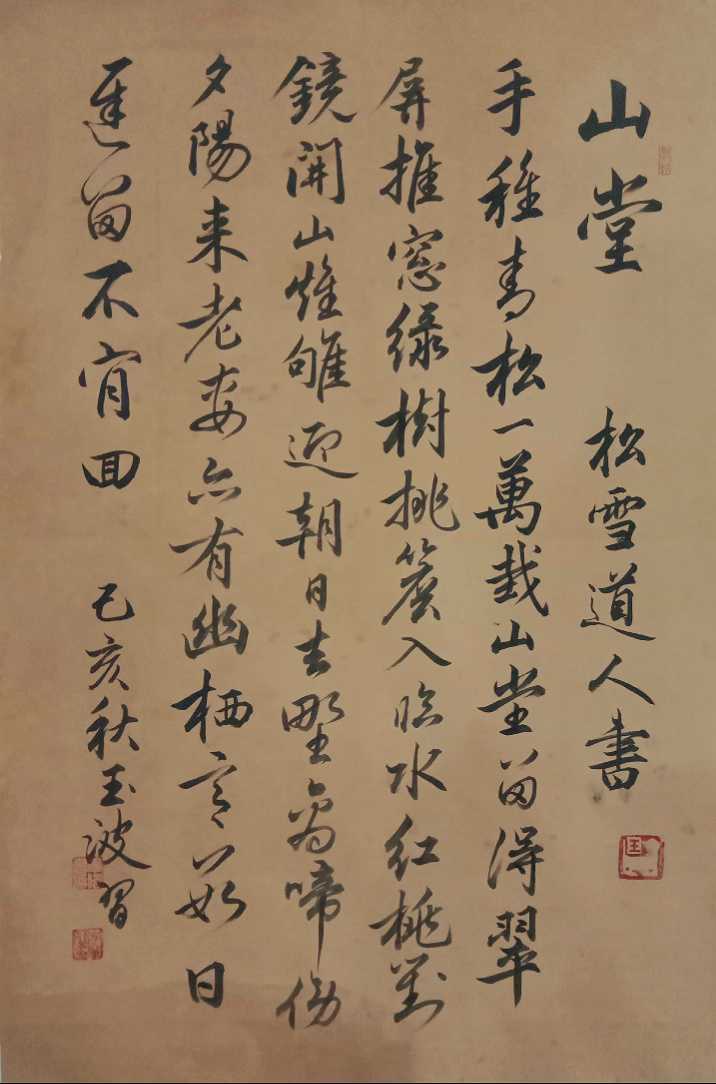 山堂 松雪道人書
手種青松一萬栽山堂留得翠
屏推窓緑樹排簷入臨水紅桃對
鏡開山雉雊迎朝日去野禽啼傍
夕陽来老妻亦有幽栖意数日
遲留不肯回 己亥秋玉波習